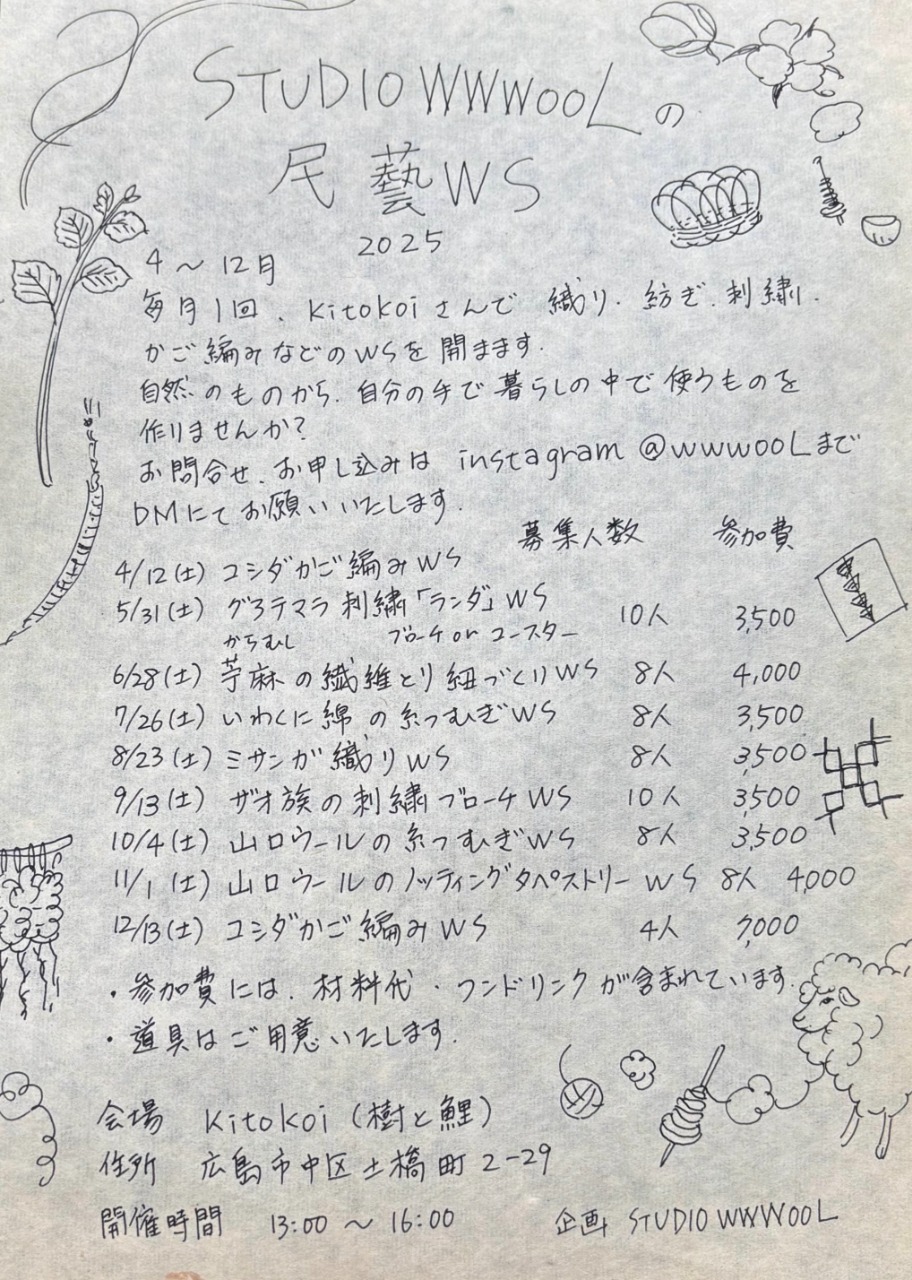 STUDIO WWWOOL の
民藝WS
2025
4 〜 12月
毎月1回、Kitokoiさんで 織り、紡ぎ、刺繍、
かご編みなどのWSを開きます。
自然のものから、自分の手で暮らしの中で使うものを
作りませんか?
お問合せ、お申し込みは instagram @wwwooLまで
DMにてお願いいたします。
募集人数 参加費
4/12(土) コシダかご編みWS
5/31(土) グアテマラ刺繍「ランダ」WS 10人 3,500
ブローチ or コースター
からむし
6/28(土) 苧麻の繊維とり紐づくりWS 8人 4,000
7/26(土) いわくに綿の糸つむぎWS 8人 3,500
8/23(土) ミサンガ織りWS 8人 3,500
9/13(土) ザオ族の刺繍ブローチWS 10人 3,500
10/4(土) 山口ウールの糸つむぎWS 8人 3,500
11/1(土) 山口ウールのノッティングタペストリーWS 8人 4,000
12/13(土) コシダかご編みWS 4人 7,000
・参加費には、材料代・ワンドリンクが含まれています。
・道具はご用意いたします。
会場 Kitokoi (樹と鯉)
住所 広島市中区土橋町2-29
開催時間 13:00 〜 16:00
企画 STUDIO WWWOOL